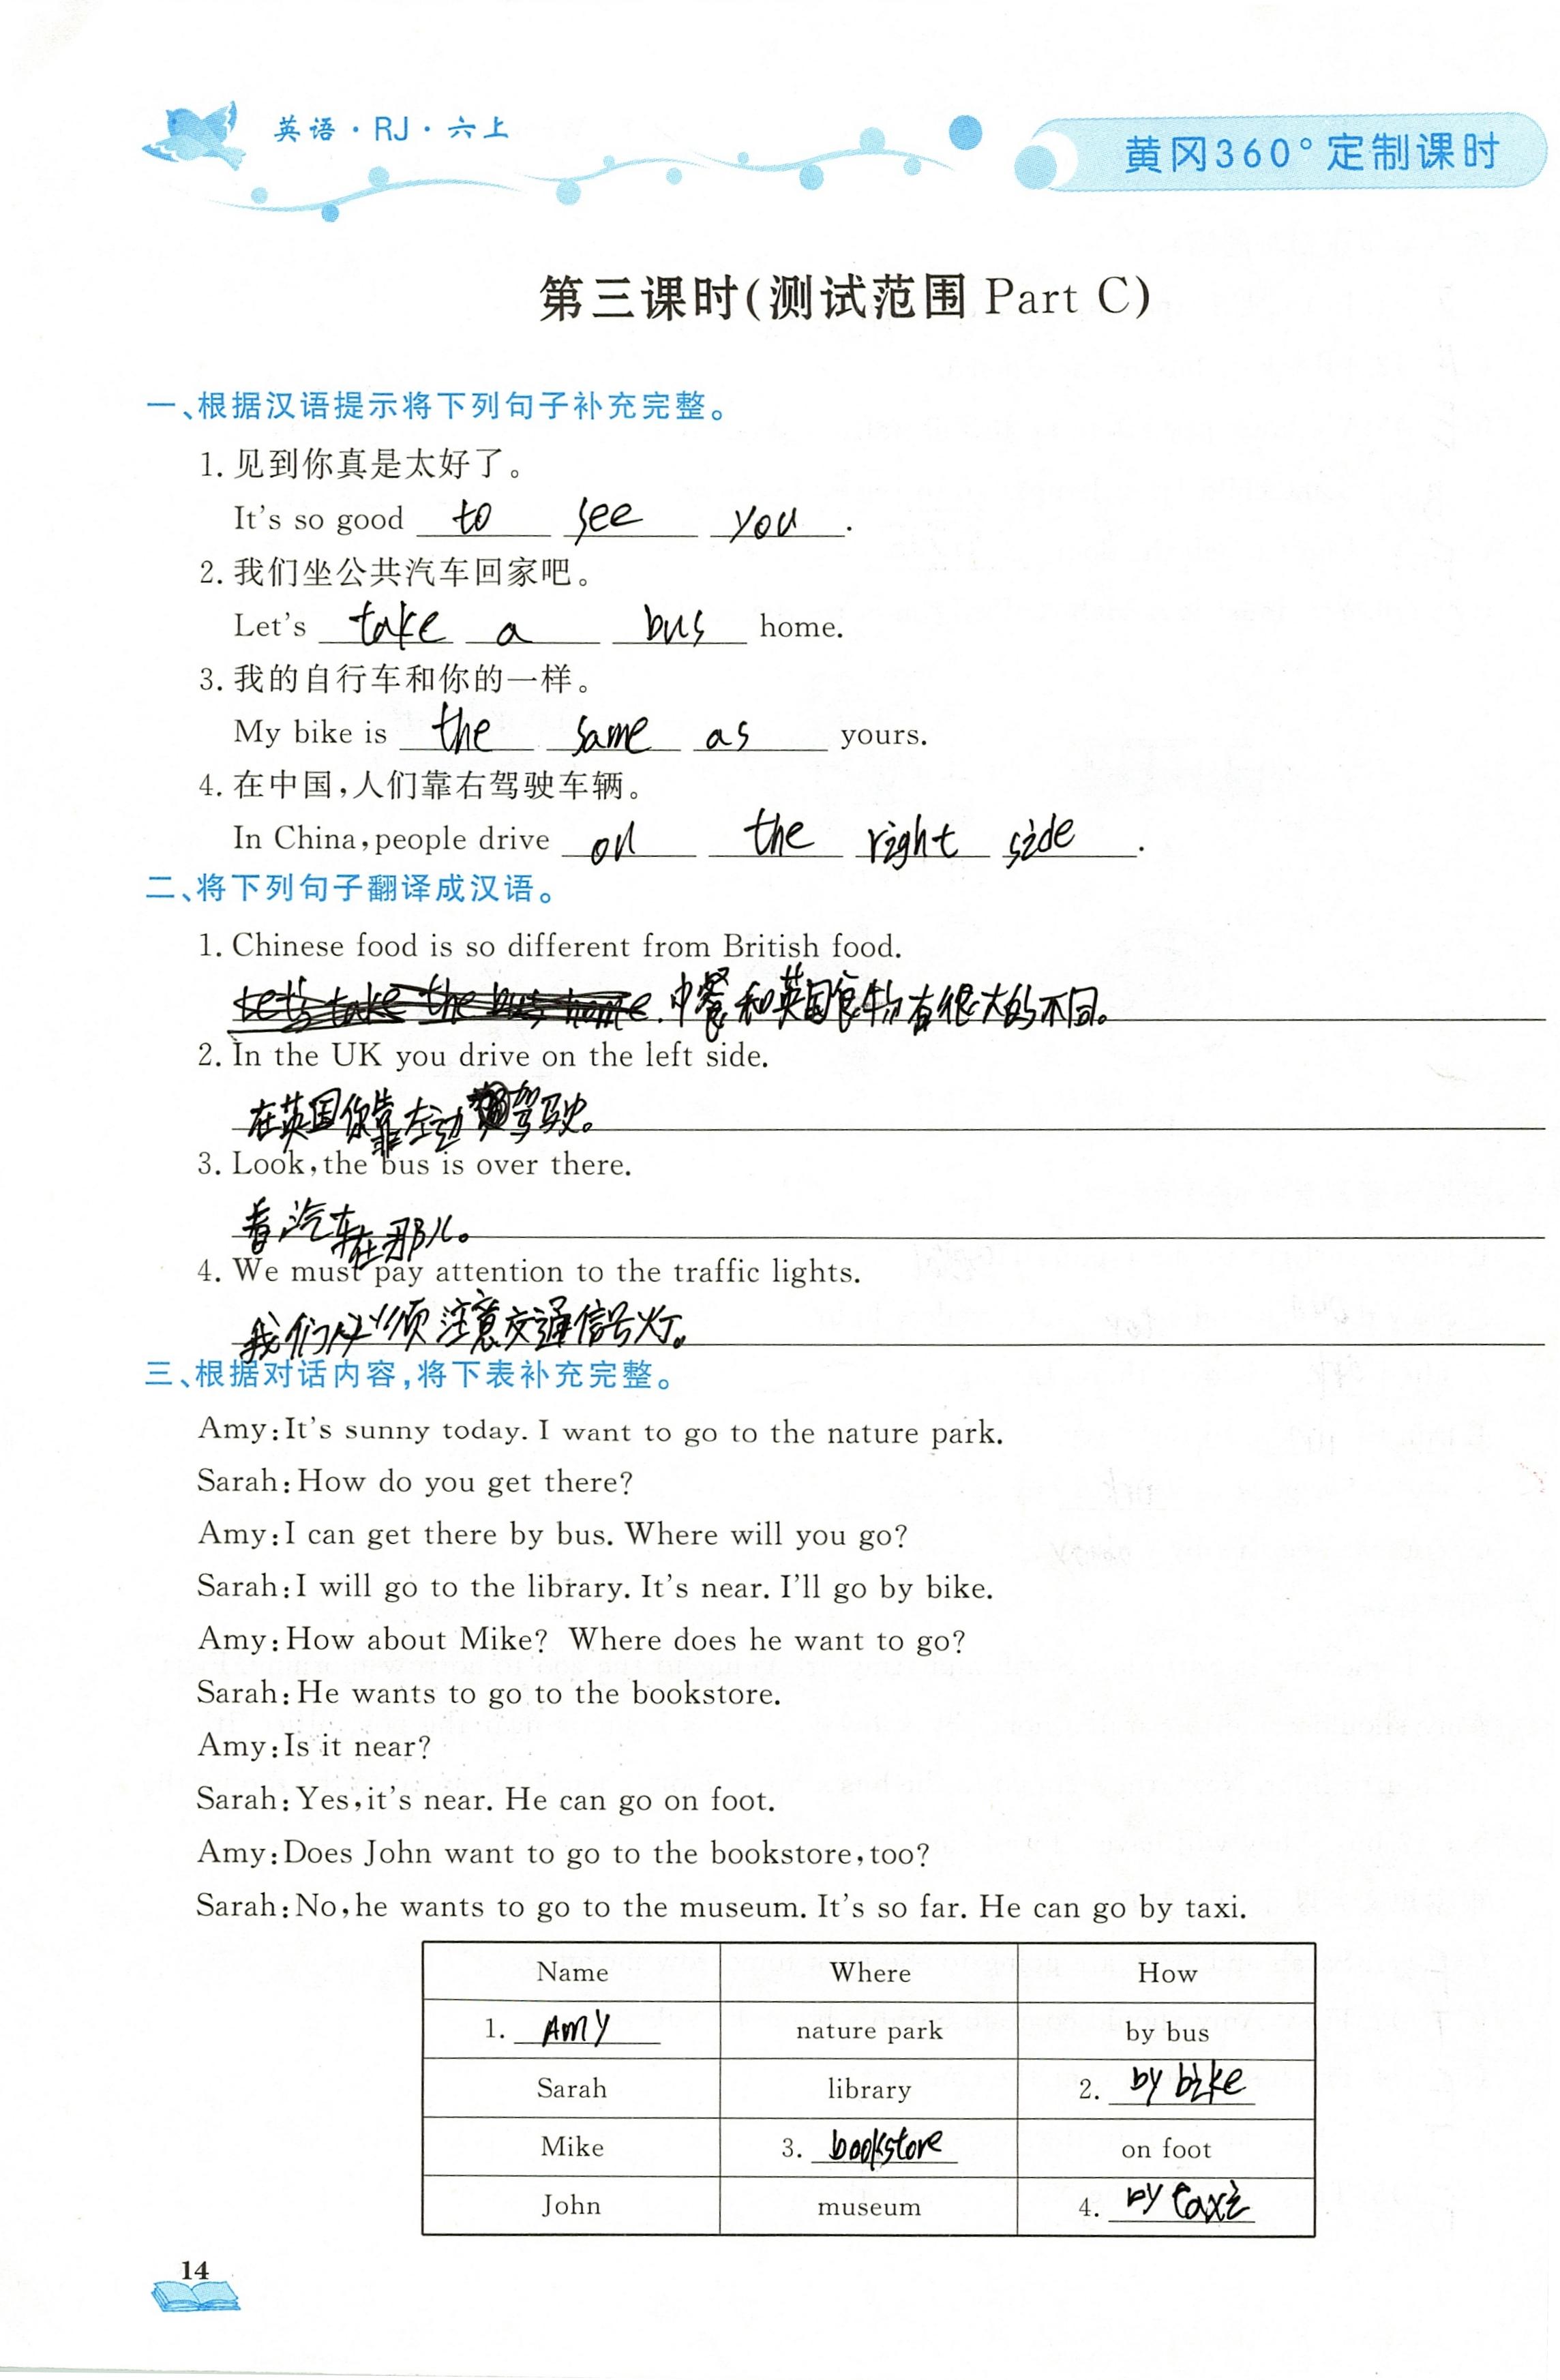 英语·RJ·六上
黄冈360°定制课时
第三课时(测试范围 Part C)
一、根据汉语提示将下列句子补充完整。
1. 见到你真是太好了。
It's so good to see you.
2. 我们坐公共汽车回家吧。
Let's take a bus home.
3. 我的自行车和你的一样。
My bike is the same as yours.
4. 在中国,人们靠右驾驶车辆。
In China, people drive on the right side.
二、将下列句子翻译成汉语。
1. Chinese food is so different from British food.
Let's take the bus home. 中餐和英国食物有很大的不同。
2. In the UK you drive on the left side.
在英国你靠左边驾驶。
3. Look, the bus is over there.
看汽车在那儿。
4. We must pay attention to the traffic lights.
我们必须注意交通信号灯。
三、根据对话内容,将下表补充完整。
Amy: It's sunny today. I want to go to the nature park.
Sarah: How do you get there?
Amy: I can get there by bus. Where will you go?
Sarah: I will go to the library. It's near. I'll go by bike.
Amy: How about Mike? Where does he want to go?
Sarah: He wants to go to the bookstore.
Amy: Is it near?
Sarah: Yes, it's near. He can go on foot.
Amy: Does John want to go to the bookstore, too?
Sarah: No, he wants to go to the museum. It's so far. He can go by taxi.
Name Where How
1. Amy nature park by bus
Sarah library 2. by bike
Mike 3. bookstore on foot
John museum 4. by taxi
14